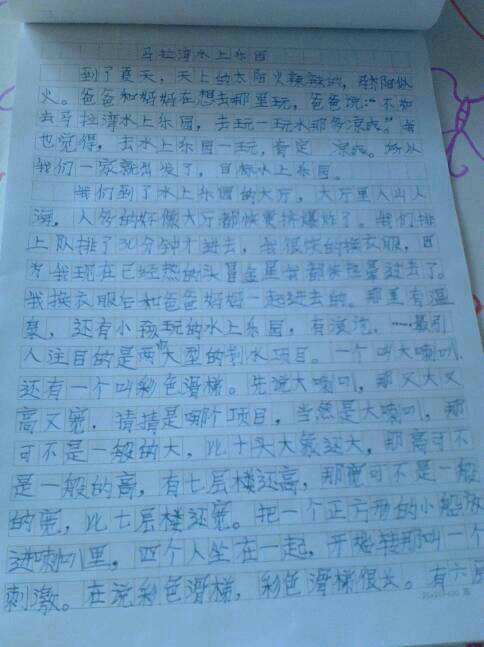 马拉湾水上乐园
到了夏天，天上的太阳火辣辣的，骄阳似
火。爸爸和妈妈在想去那里玩，爸爸说：“不如
去马拉湾水上乐园，去玩一玩水那多凉爽。”我
也觉得，去水上乐园一玩，肯定 凉爽。所以
我们一家就出发了，目标水上乐园。
我们到了水上乐园的大厅，大厅里人山人
海，人多的好像大厅都快要挤爆炸了。我们排
上队排了30分钟才进去，我很快的换衣服，因
为我现在已经热的头冒金星我都快热晕过去了。
我换衣服后和爸爸妈妈一起进去的。那里有温
泉，还有小孩玩的水上乐园，有漂流，……最引
人注目的是两个大型的刺水项目。一个叫大喇叭，
还有一个叫彩色滑梯。先说大喇叭，那又大又
高又宽，请猜是哪个项目，当然是大喇叭，那
可不是一般的大，比十头大象还大，那高可不
是一般的高，有七层楼还高，那宽可不是一般
的宽，比七层楼还宽。把一个正方形的小船放
进喇叭里，四个人坐在一起，开始转那叫一个
刺激。在说彩色滑梯，彩色滑梯很长。有六